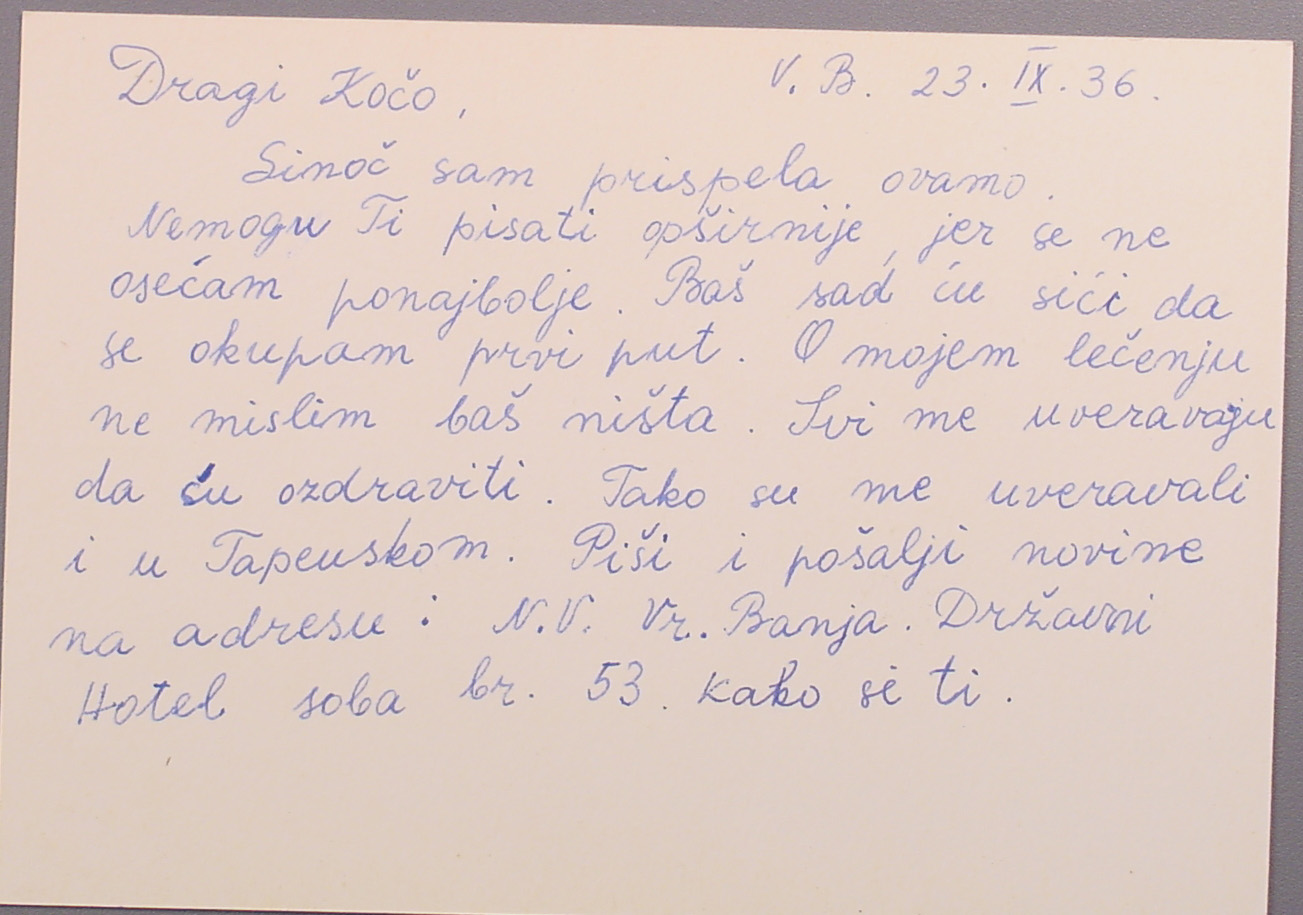 Dragi Kočo,
V. B. 23. IX. 36.
Sinoč sam prispela ovamo.
Nemogu Ti pisati opširnije, jer se ne
osećam ponajbolje. Baš sad ću sići da
se okupam prvi put. O mojem lečenju
ne mislim baš ništa. Svi me uveravaju
da ću ozdraviti. Tako su me uveravali
i u Tapeuskom. Piši i pošalji novine
na adresu: N.V. Vr. Banja. Državni
Hotel soba br. 53. kako si ti.